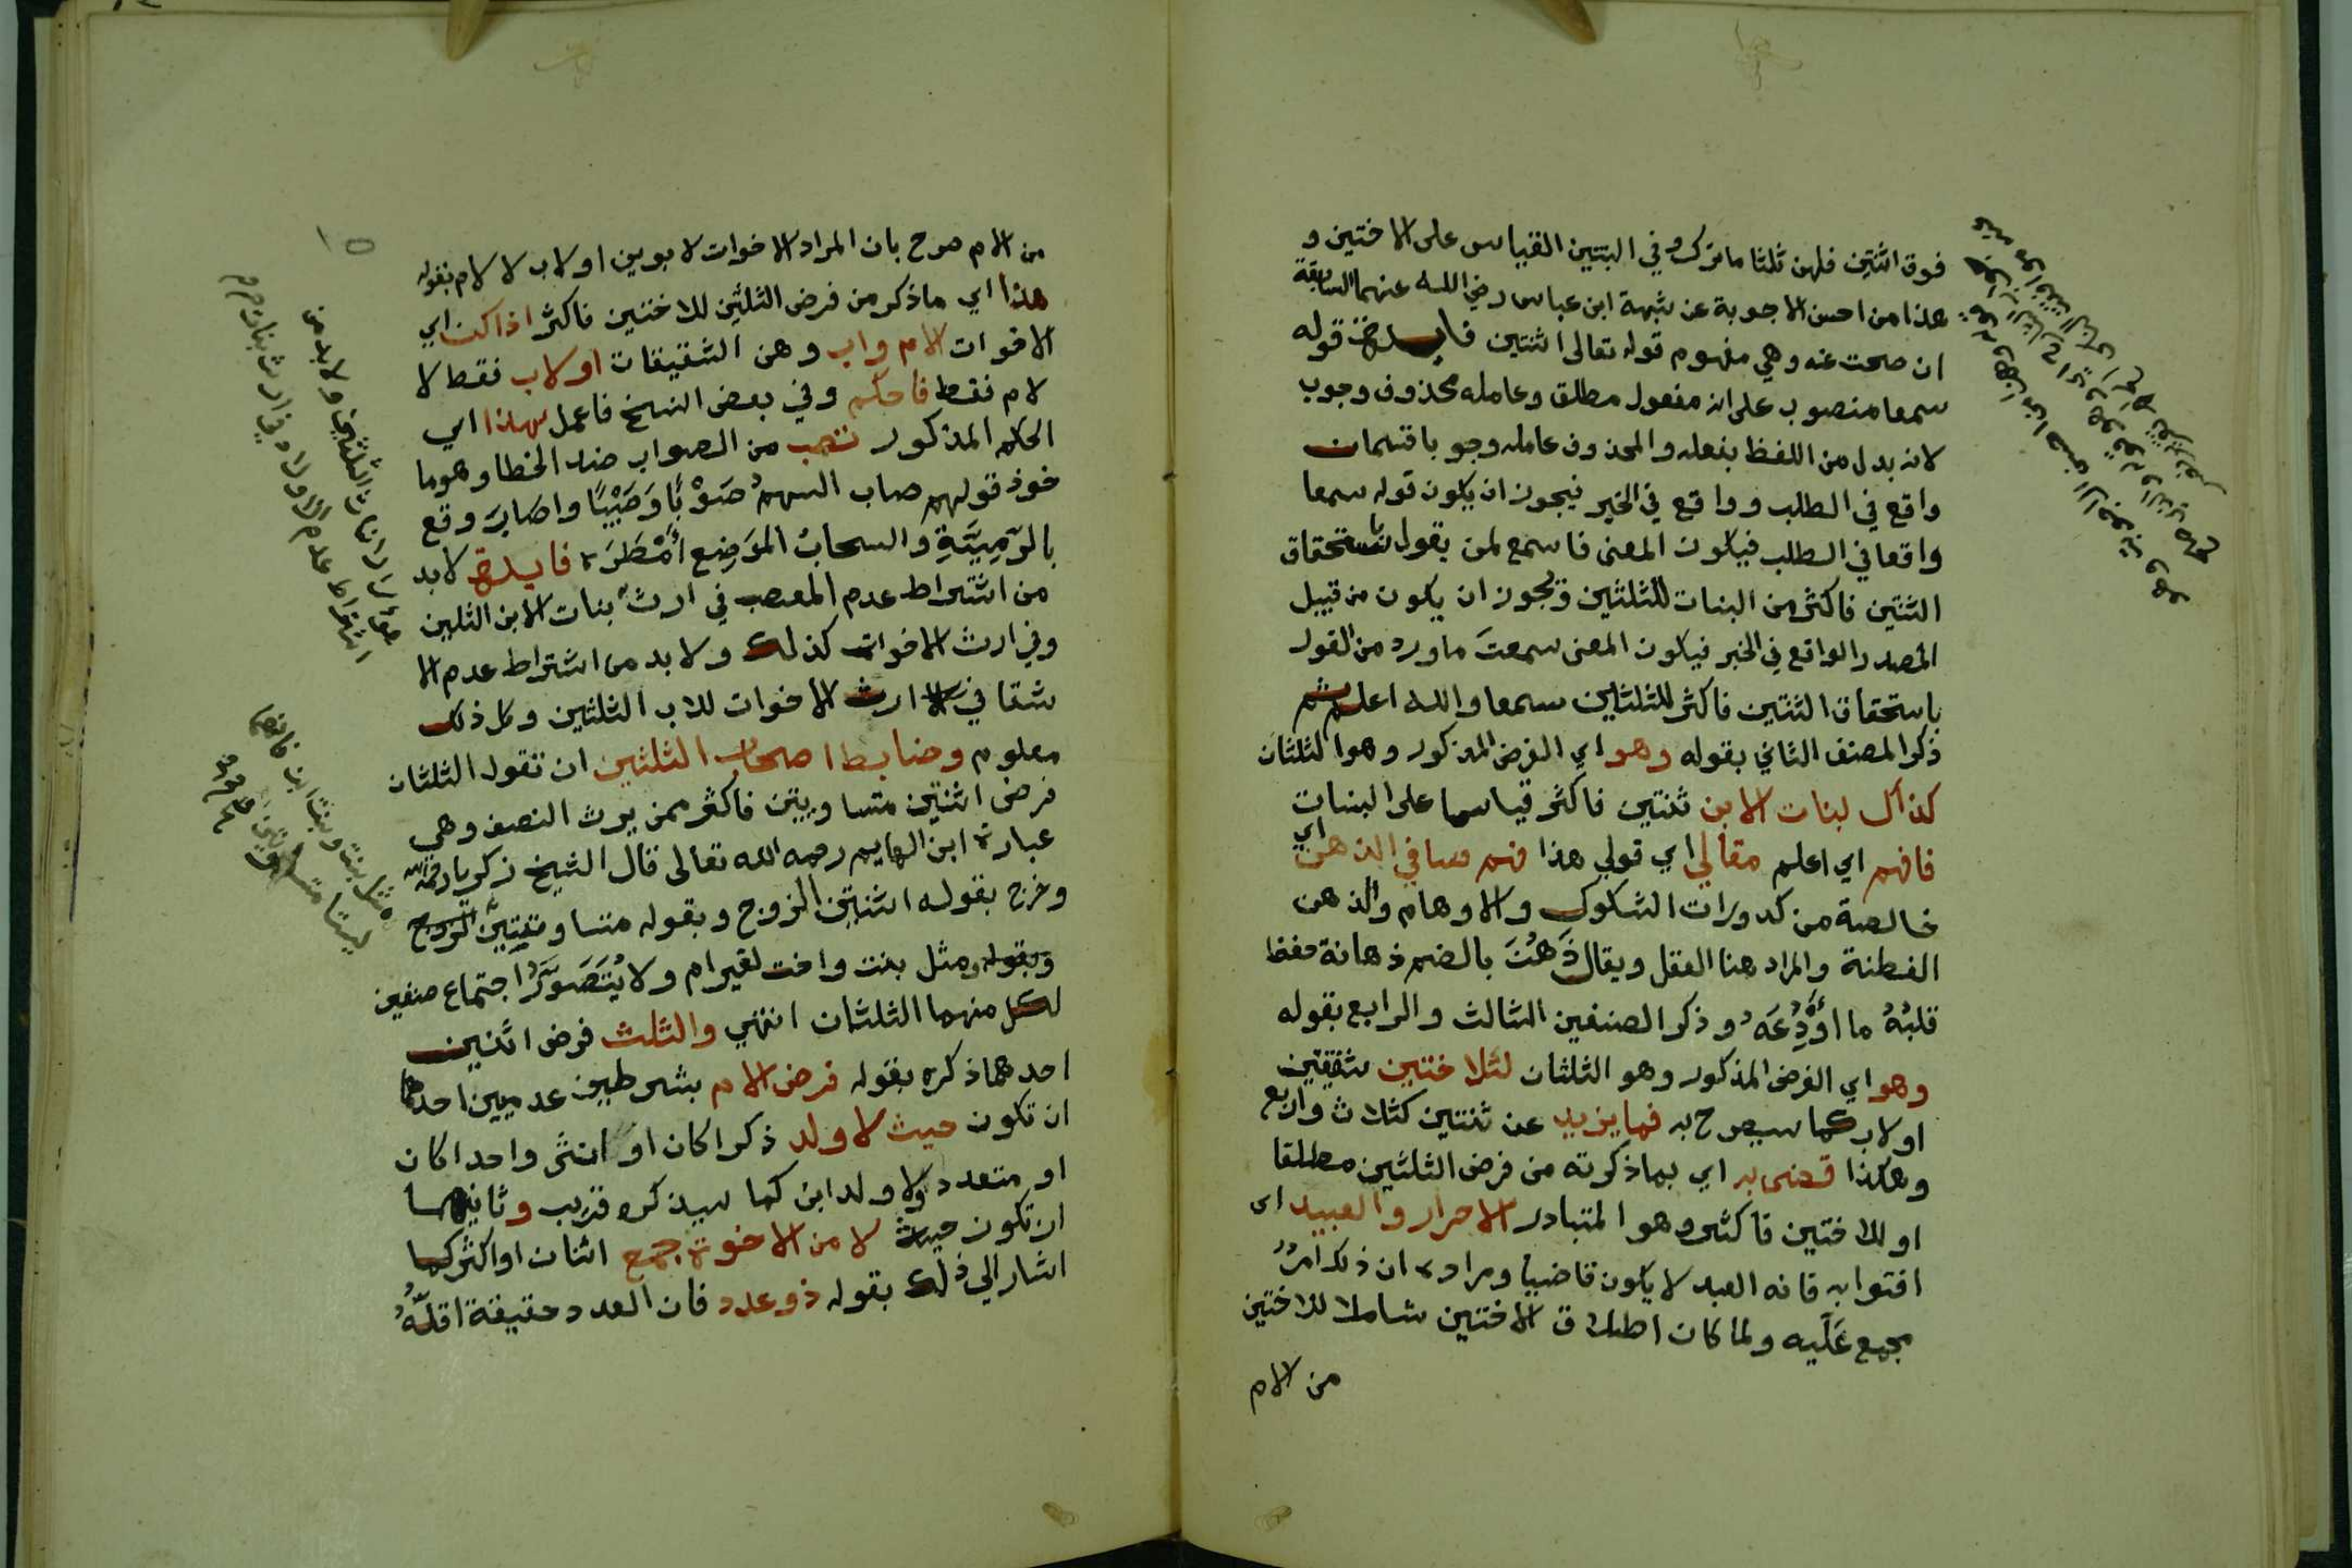 فوق اثنتين فلهن ثلثا ما ترك وفي البنتين القياس على الاختين و
هذا من احسن الاجوبة عن شبهة ابن عباس رضي الله عنهما السابقة
ان صحت عنه وهي مفهوم قوله تعالى اثنتين فايدة قوله
سمعا منصوب على انه مفعول مطلق وعامله محذوف وجوب
لانه بدل من اللفظ بفعله والمحذوف عامله وجوبا قسمان
واقع في الطلب وواقع في الخبر فيجوز ان يكون قوله سمعا
واقعا في الطلب فيكون المعنى فاسمع لمن يقول باستحقاق
الثنتين فاكثر من البنات للثلثين ويجوز ان يكون من قبيل
المصدر الواقع في الخبر فيكون المعنى سمعت ما ورد من القول
باستحقاق الثنتين فاكثر للثلثين سمعا والله اعلم ثم
ذكر المصنف الثاني بقوله وهو اي الفرض المذكور وهو الثلثان
كذاك لبنات الابن ثنتين فاكثر قياسا على البنات
فافهم اي اعلم مقالي اي قولي هذا فهم صافي الذهن اي
خالصة من كدورات الشكوك والاوهام والذهن
الفطنة والمراد هنا العقل ويقال ذَهُنَ بالضم ذهانة حفظ
قلبُهُ ما اُوْدِعَهُ وذكر الصنفين الثالث والرابع بقوله
وهو اي الفرض المذكور وهو الثلثان للاختين شقيقتين
او لاب كما سيصرح به فما يزيد عن ثنتين كثلاث واربع
وهكذا قضى به اي بما ذكرته من فرض الثلثين مطلقا
او للاختين فاكثر وهو المتبادر الاحرار والعبيد اى
افتوا به فانه العبد لا يكون قاضيا ومراده ان ذلك امرٌ
مجمع عَلَيه ولما كان اطلاق الاختين شاملا للاختين
من الام
١٥
من الام صرح بان المراد الاخوات لابوين او لاب لا لام بقوله
هذا اي ما ذكر من فرض الثلثين للاختين فاكثر اذا كن اي
الاخوات لام واب وهن الشقيقات او لاب فقط لا
لام فقط فاحكم وفي بعض النسخ فاعمل بهذا اي
الحكم المذكور تصب من الصواب ضد الخطا وهو ما
خوذ قولهم صاب السهمُ صَوْبًا وَصَيْبًا واصابَ وقع
بالرَّمِيَّةِ والسحابُ الموَضِع أَمْطَرَه فايدة لابد
من اشتراط عدم المعصب في ارث بنات الابن الثلثين
وفي ارث الاخوات كذلك ولا بد من اشتراط عدم الا
شقا في ارث الاخوات للاب الثلثين وكل ذلك
معلوم وضابط اصحاب الثلثين ان تقول الثلثان
فرض اثنتين متساويتين فاكثر ممن يرث النصف وهي
عبارة ابن الهايم رحمه الله تعالى قال الشيخ زكريا رحمه الله
وخرج بقوله اثنتين الزوج وبقوله متساويتين الزوج
وبقوله ومثل بنت واخت لغير ام ولا يُتَصَوَّرُ اجتماع صنفين
لكل منهما الثلثان انتهي والثلث فرض اثنين
احدهما ذكره بقوله فرض الام بشرطين عدميين احدهما
ان تكون حيث لا ولد ذكرا كان او انثى واحدا كان
او متعددا ولا ولد ابن كما سيذكره قريب وثانيهما
ان تكون حيث لا من الاخوة جمع اثنان او اكثر كما
اشار الي ذلك بقوله ذو عدد فان العدد حقيقة اقلُّهُ